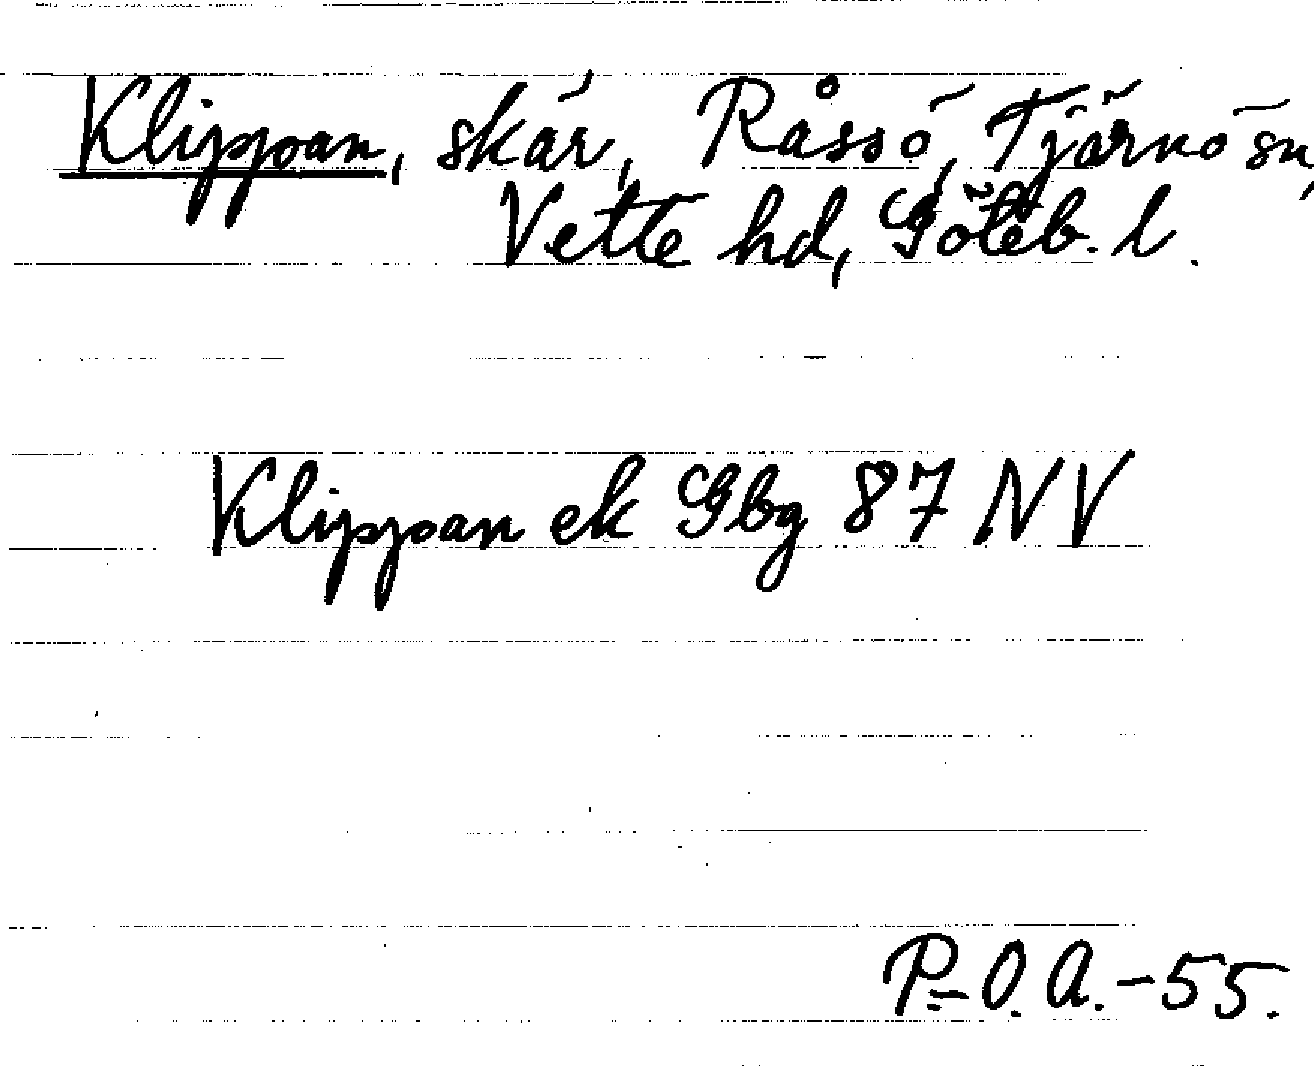 Klippan, skär, Råssö, Tjärnö sn,
Vette hd, Göteb. l.
Klippan ek Gbg 87 NV
P-O.A.-55.